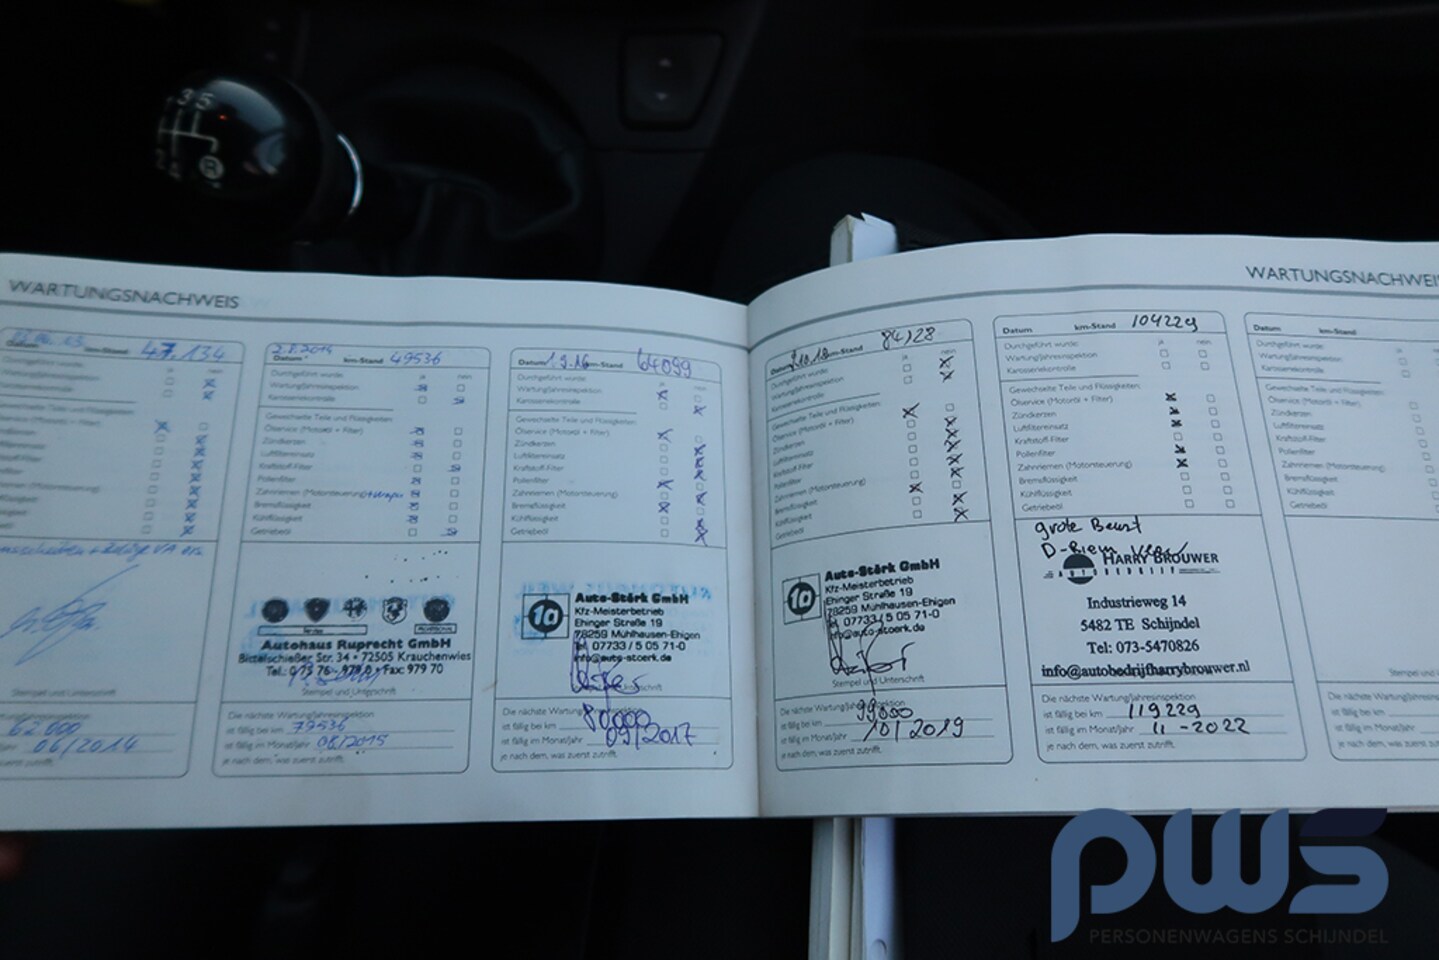 3 5
R
WARTUNGSNACHWEIS
km-Stand 47.134
62.000
06/2014
Datum km-Stand 49536
Durchgeführt wurde: ja nein
Wartung/Jahresinspektion
Karosseriekontrolle
Gewechselte Teile und Flüssigkeiten:
Ölservice (Motoröl + Filter)
Zündkerzen
Luftfiltereinsatz
Kraftstoff-Filter
Pollenfilter
Zahnriemen (Motorsteuerung)
Bremsflüssigkeit
Kühlflüssigkeit
Getriebeöl
Autohaus Ruprecht GmbH
Bittelschießer Str. 34 • 72505 Krauchenwies
Stempel und Unterschrift
Die nächste Wartung/Jahresinspektion
ist fällig bei km 79536
ist fällig im Monat/Jahr 08/2015
je nach dem, was zuerst zutrifft.
Datum 1.9.16 km-Stand 64099
Durchgeführt wurde: ja nein
Wartung/Jahresinspektion
Karosseriekontrolle
Gewechselte Teile und Flüssigkeiten:
Ölservice (Motoröl + Filter)
Zündkerzen
Luftfiltereinsatz
Kraftstoff-Filter
Pollenfilter
Zahnriemen (Motorsteuerung)
Bremsflüssigkeit
Kühlflüssigkeit
Getriebeöl
10
Auto-Störk GmbH
Kfz-Meisterbetrieb
Ehinger Straße 19
78259 Mühlhausen-Ehigen
Tel. 07733 / 5 05 71-0
info@auto-stoerk.de
Die nächste Wartung/Jahresinspektion
ist fällig bei km 80000
ist fällig im Monat/Jahr 09/2017
je nach dem, was zuerst zutrifft.
WARTUNGSNACHWEIS
Datum km-Stand 84128
Durchgeführt wurde: ja nein
Wartung/Jahresinspektion
Karosseriekontrolle
Gewechselte Teile und Flüssigkeiten:
Ölservice (Motoröl + Filter)
Zündkerzen
Luftfiltereinsatz
Kraftstoff-Filter
Pollenfilter
Zahnriemen (Motorsteuerung)
Bremsflüssigkeit
Kühlflüssigkeit
Getriebeöl
10
Auto-Störk GmbH
Kfz-Meisterbetrieb
Ehinger Straße 19
78259 Mühlhausen-Ehigen
Tel. 07733 / 5 05 71-0
info@auto-stoerk.de
Stempel und Unterschrift
Die nächste Wartung/Jahresinspektion
ist fällig bei km 99000
ist fällig im Monat/Jahr 10/2019
je nach dem, was zuerst zutrifft.
Datum km-Stand 104229
Durchgeführt wurde: ja nein
Wartung/Jahresinspektion
Karosseriekontrolle
Gewechselte Teile und Flüssigkeiten:
Ölservice (Motoröl + Filter)
Zündkerzen
Luftfiltereinsatz
Kraftstoff-Filter
Pollenfilter
Zahnriemen (Motorsteuerung)
Bremsflüssigkeit
Kühlflüssigkeit
Getriebeöl
grote Beurt
D-Riem
HARRY BROUWER
AUTOBEDRIJF
Industrieweg 14
5482 TE Schijndel
Tel: 073-5470826
info@autobedrijfharrybrouwer.nl
Die nächste Wartung/Jahresinspektion
ist fällig bei km 119229
ist fällig im Monat/Jahr 11-2022
je nach dem, was zuerst zutrifft.
Datum km-Stand
Durchgeführt wurde:
Wartung/Jahresinspektion
Karosseriekontrolle
Gewechselte Teile und Flüssigkeiten:
Ölservice (Motoröl + Filter)
Zündkerzen
Luftfiltereinsatz
Kraftstoff-Filter
Pollenfilter
Zahnriemen (Motorsteuerung)
Bremsflüssigkeit
Kühlflüssigkeit
Getriebeöl
Die nächste Wartung/Jahresinspektion
ist fällig bei km
ist fällig im Monat/Jahr
je nach dem, was zuerst zutrifft.
pws
PERSONENWAGENS SCHIJNDEL